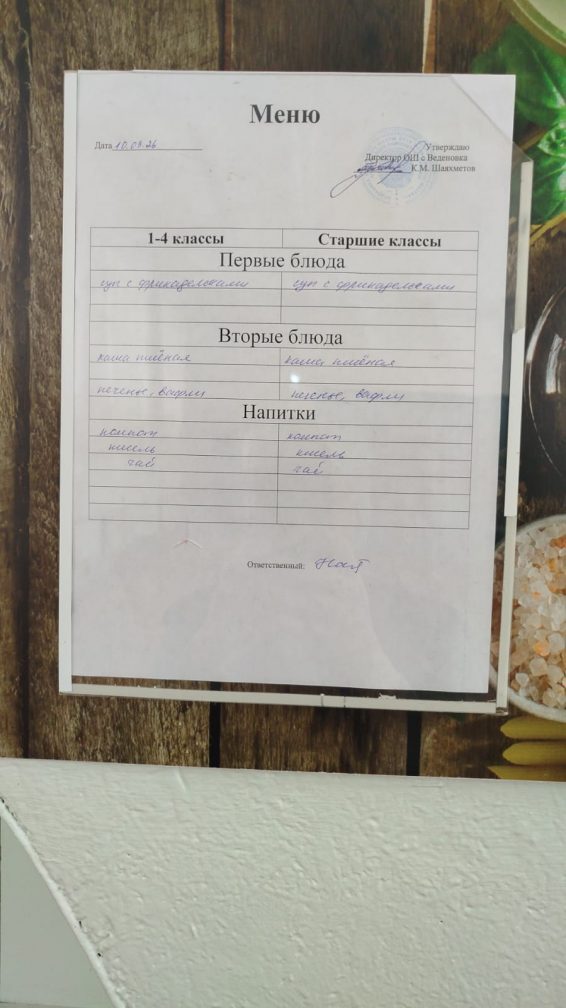 Меню
Дата 10.09.26
Утверждаю
Директор ОШ с Веденовка
К.М. Шаяхметов
1-4 классы Старшие классы
Первые блюда
суп с фрикадельками суп с фрикадельками
Вторые блюда
каша пшёная каша пшёная
печенье, вафли печенье, вафли
Напитки
компот компот
кисель кисель
чай чай
Ответственный: